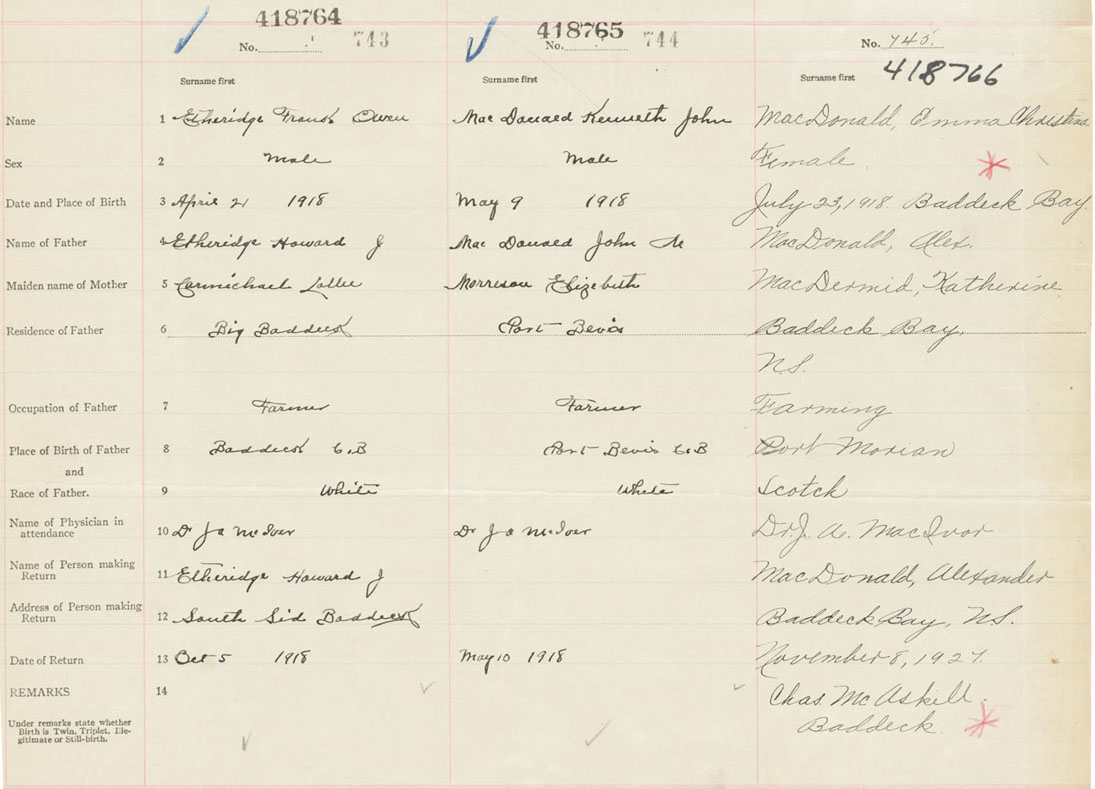 418764 418765
No. 743 No. 744 No. 745.
418766
Surname first Surname first Surname first
Name 1 Etheridge Frank Owen Mac Donald Kenneth John MacDonald, Emma Christina
Sex 2 Male Male Female
Date and Place of Birth 3 April 21 1918 May 9 1918 July 23, 1918. Baddeck Bay.
Name of Father 4 Etheridge Howard J Mac Donald John MacDonald, Alex.
Maiden name of Mother 5 Carmichael Morrison Elizebeth MacDermid, Katherine
Residence of Father 6 Big Baddeck Port Bevis Baddeck Bay,
N.S.
Occupation of Father 7 Farmer Farmer Farming
Place of Birth of Father 8 Baddeck C.B Port Bevis C.B Port Morian
and
Race of Father. 9 White White Scotch
Name of Physician in
attendance 10 Dr J A McIver Dr J A McIver Dr. J. A. MacIvor
Name of Person making
Return 11 Etheridge Howard J MacDonald, Alexander
Address of Person making
Return 12 South Sid Baddeck Baddeck Bay, N.S.
Date of Return 13 Oct 5 1918 May 10 1918 November 8, 1927.
REMARKS 14 Chas. McAskill
Baddeck.
Under remarks state whether
Birth is Twin, Triplet, Ille-
gitimate or Still-birth.